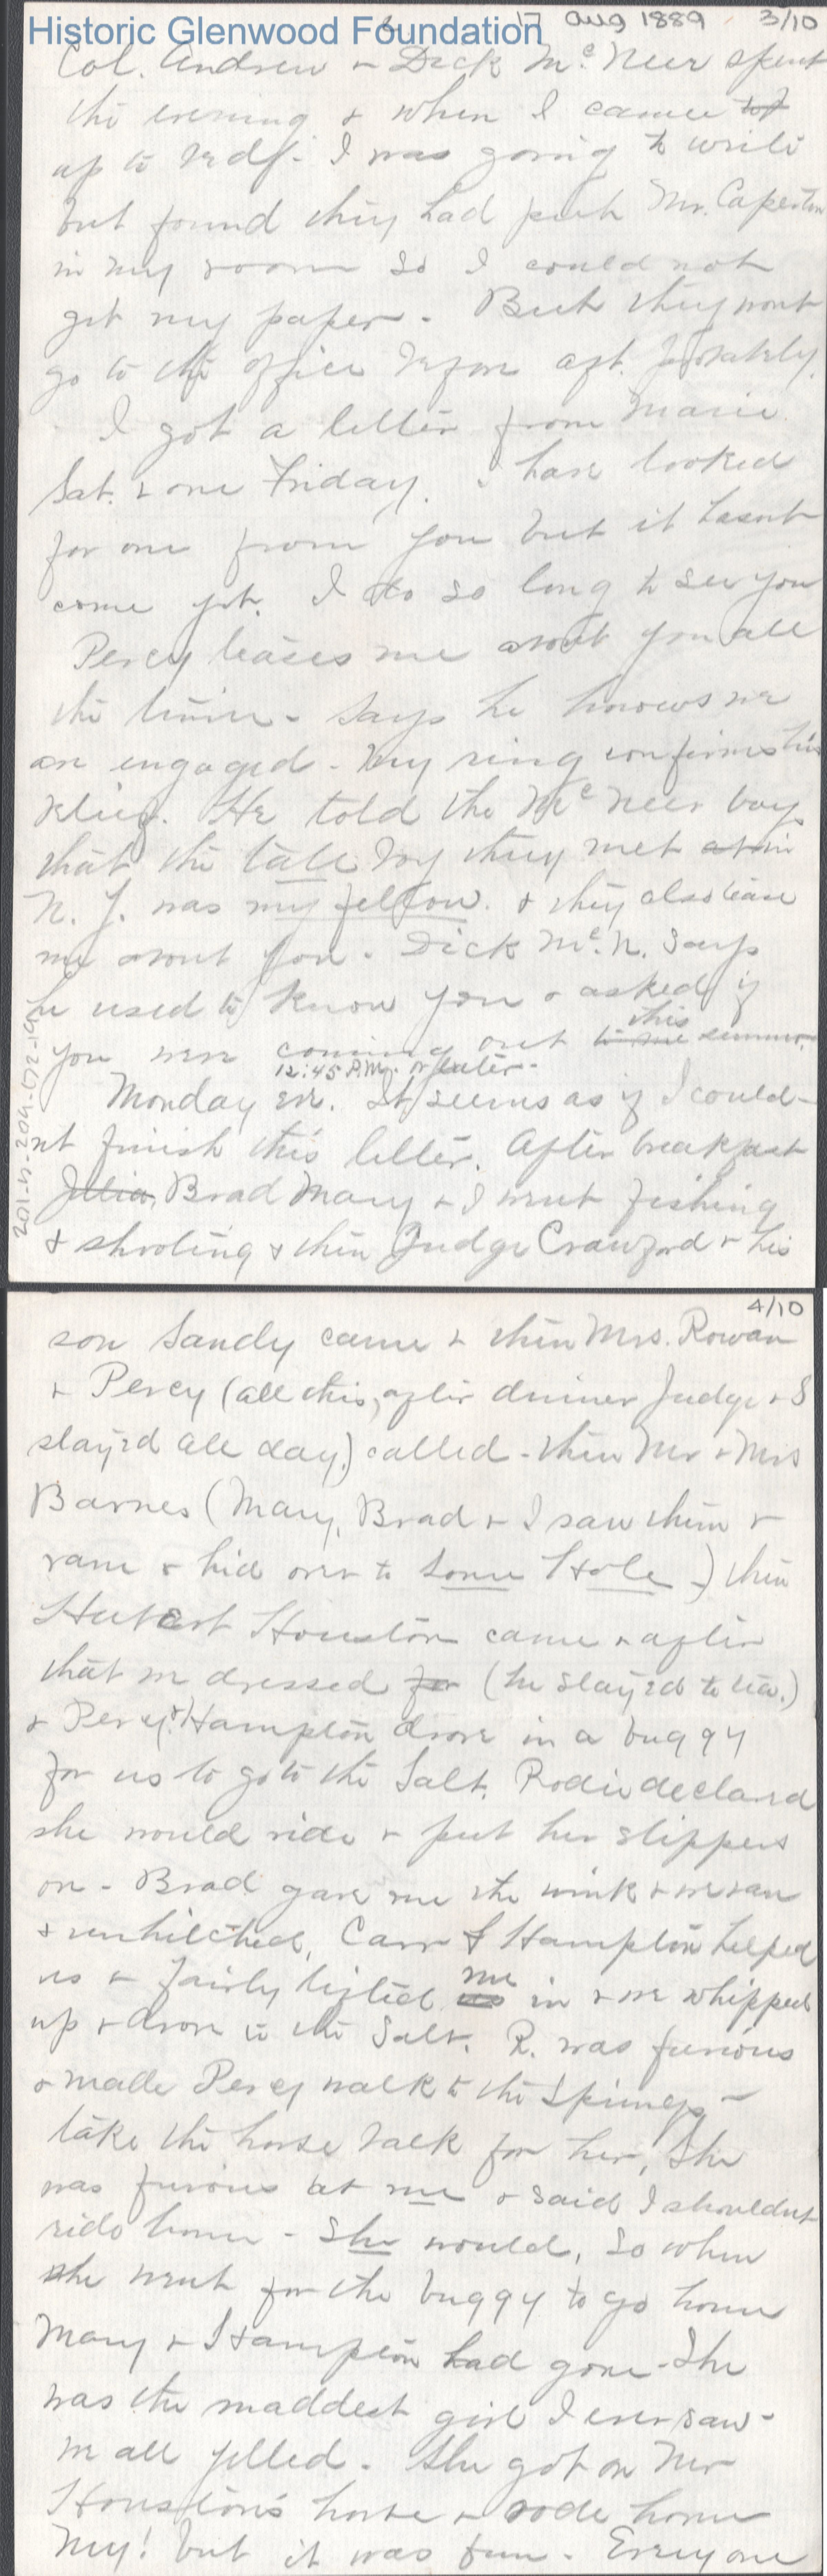 Historic Glenwood Foundation
17 Aug 1889 3/10
Col. Andrew & Dick McNeer spent
the evening & when I came
up to bed. I was going to write
but found they had put Mr. Caperton
in my room so I could not
get my paper. But they wont
go to the office before aft. probably.
I got a letter from Marie
Sat. & one Friday. I have looked
for one from you but it hasnt
come yet. I do so long to see you
Percy teases me about you all
the time - says he knows we
are engaged - my ring confirms his
belief. He told the McNeer boys
that the tall boy they met at in
N. Y. was my fellow. & they also tease
me about you. Dick McN. says
he used to know you & asked if
you were coming out to me this summer.
12:45 P.M. or later.
Monday eve. It seems as if I could-
nt finish this letter. After breakfast
Julia, Brad Mary & I went fishing
& shooting & then Judge Crawford & his
201-15-204-172-19
4/10
son Sandy came & then Mrs. Rowan
& Percy (all this, after dinner Judge & S
stayed all day.) called - then Mr & Mrs
Barnes (Mary, Brad & I saw them &
ran & hid over to Some Hole -) then
Hubert Houston came & after
that we dressed for (he stayed to tea.)
& Percy & Hampton drove in a buggy
for us to go to the Salt. Rodie declared
she would ride & put her slippers
on - Brad gave me the wink & we ran
& unhitched, Carr & Hampton helped
us & fairly lifted us me in & we whipped
up & drove to the Salt. R. was furious
& made Percy walk to the Springs -
take the horse back for her, She
was furious at me & said I shouldnt
ride home - She would, So when
she went for the buggy to go home
Mary & Hampton had gone - She
was the maddest girl I ever saw -
we all yelled. She got on Mr
Houston's horse & rode home
My! but it was fun. Everyone